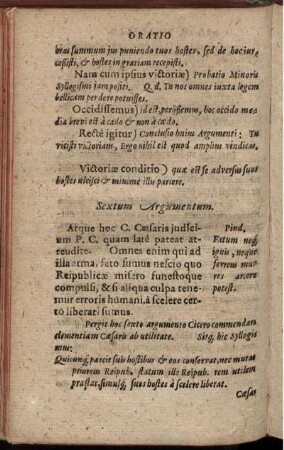 ORATIO
bras summum jus puniendo tuos hostes, sed de hoc jure
cesisti, & hostes in gratiam recepisti.
Nam cum ipsius victoriæ) Probatio Minoris
Syllogismi jam positi. Q. d. Tu nos omnes iuxta legem
bellicam perdere potuisses.
Occidissemus) id est, perijssemus, hoc occido media
brevi est à cado & non à cædo.
Rectè igitur) Conclusio huius Argumenti: Tu
vicisti victoriam, Ergo nihil est quod amplius vindicas.
Victoriæ conditio) quæ est se adversus suos
hostes ulcisci & minimè illis parcere.
Sextum Argumentum.
Atque hoc C. Cæsaris judici-
um P. C. quam latè pateat at-
tendite. Omnes enim qui ad
illa arma, fato sumus nescio quo
Reipublicæ misero funestoque
compulsi, & si aliqua culpa tene-
mur erroris humani, à scelere cer-
tò liberati sumus.
Pind.
Fatum neq;
ignis, neque
ferreus mu-
rus arcere
potest.
Pergit hoc sexto argumento Cicero commendare
clementiam Cæsaris ab utilitate. Sitq; hic Syllogis-
mus:
Quicunq; parcit suis hostibus & eos conservat, nec mutat
priorem Reipub. statum ille Reipub. rem utilem
præstat, simulq; suos hostes à scelere liberat.
Cæsar